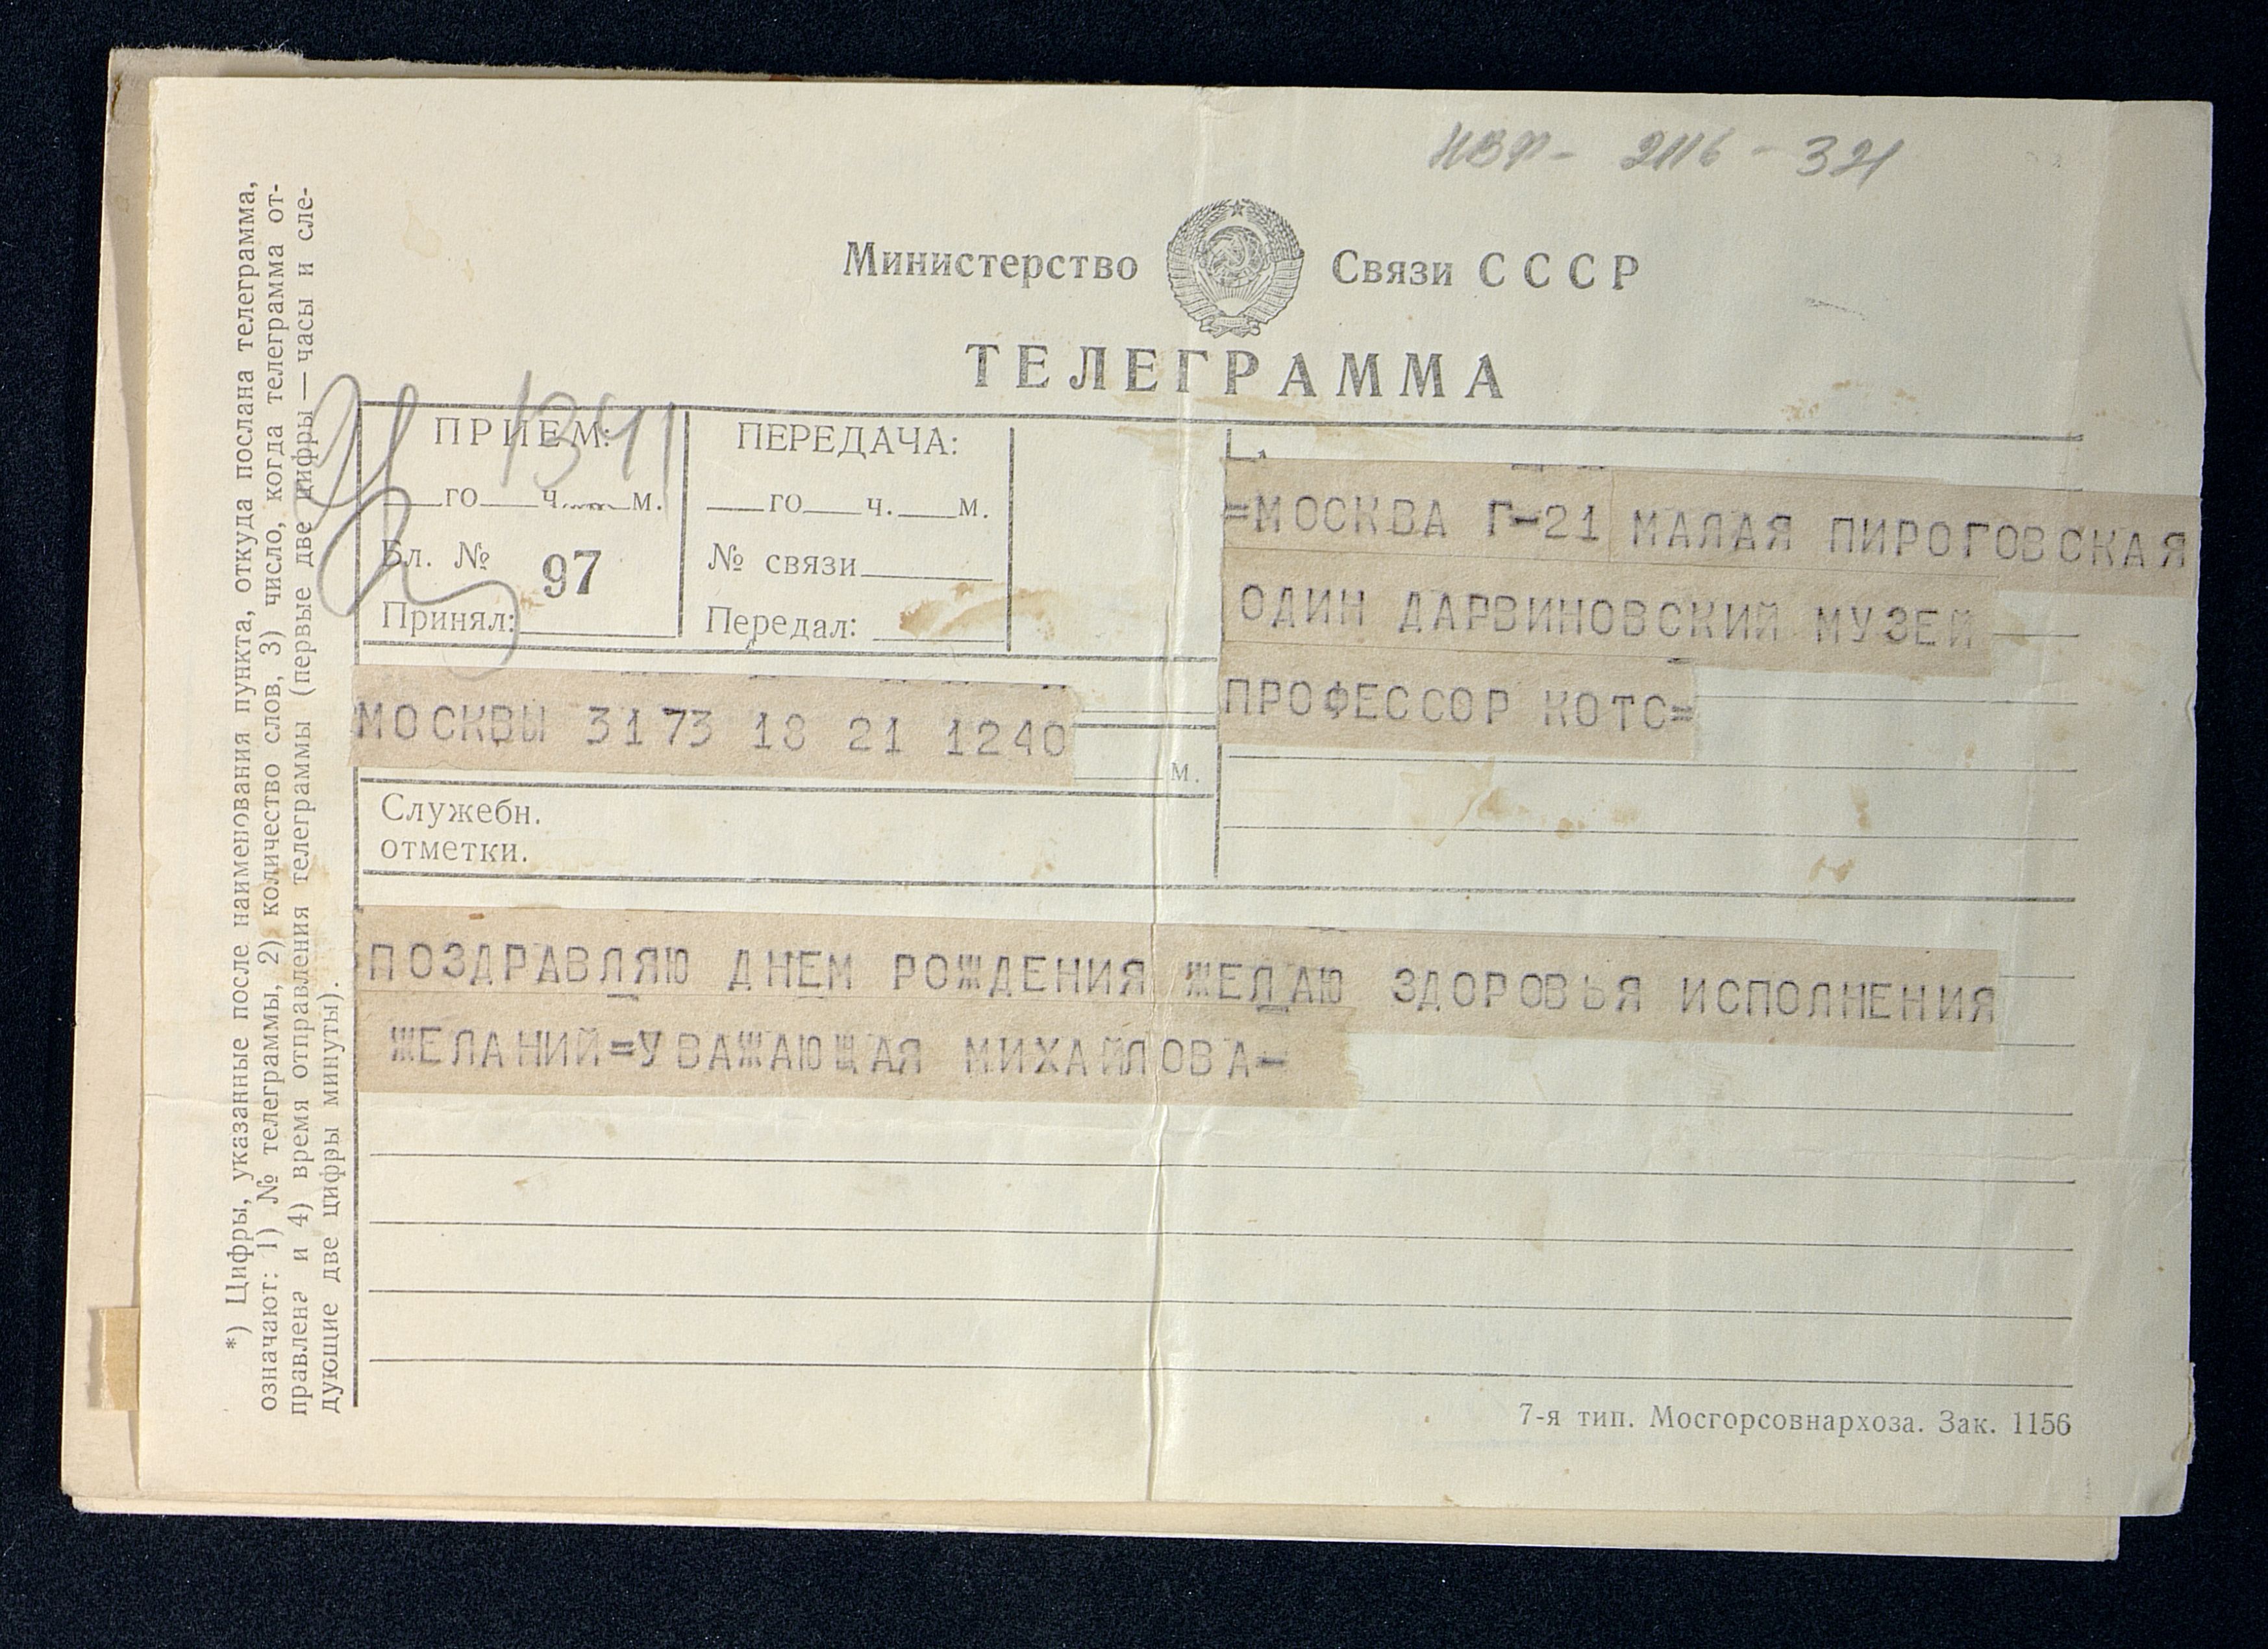 НВФ- 2116-321
Министерство Связи СССР
ТЕЛЕГРАММА
ПРИЕМ:
1341
го ч. м.
Бл. № 97
Принял:
ПЕРЕДАЧА:
го ч. м.
№ связи
Передал:
=МОСКВА Г-21 МАЛАЯ ПИРОГОВСКАЯ
ОДИН ДАРВИНОВСКИЙ МУЗЕЙ
ПРОФЕССОР КОТС=
МОСКВЫ 3173 18 21 1240
м.
Служебн.
отметки.
ПОЗДРАВЛЯЮ ДНЕМ РОЖДЕНИЯ ЖЕЛАЮ ЗДОРОВЬЯ ИСПОЛНЕНИЯ
ЖЕЛАНИЙ=УВАЖАЮЩАЯ МИХАЙЛОВА-
7-я тип. Мосгорсовнархоза. Зак. 1156
*) Цифры, указанные после наименования пункта, откуда послана телеграмма,
означают: 1) № телеграммы, 2) количество слов, 3) число, когда телеграмма от-
правлена и 4) время отправления телеграммы (первые две цифры — часы и сле-
дующие две цифры минуты).